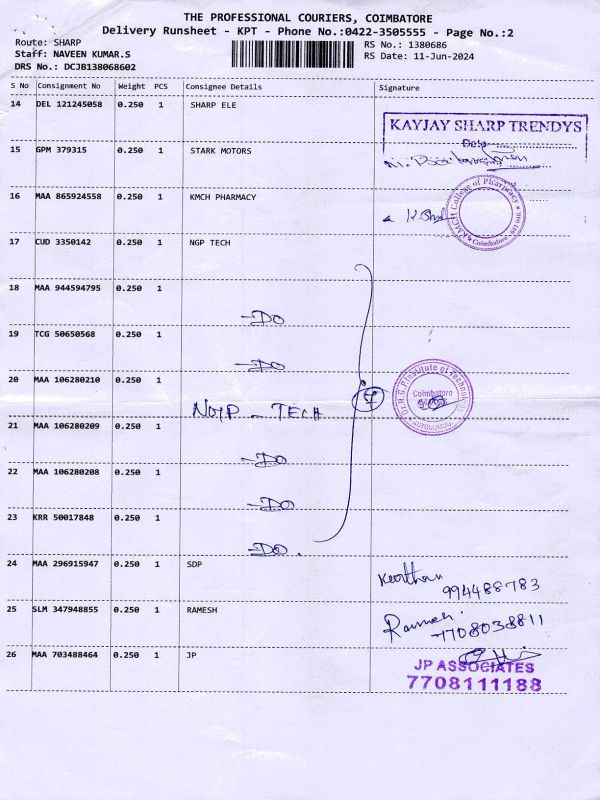 THE PROFESSIONAL COURIERS, COIMBATORE
Delivery Runsheet - KPT - Phone No.:0422-3505555 - Page No.:2
Route: SHARP
RS No.: 1380686
Staff: NAVEEN KUMAR.S
RS Date: 11-Jun-2024
DRS No.: DCJB138068602
S No Consignment No Weight PCS Consignee Details Signature
14 DEL 121245058 0.250 1 SHARP ELE
KAYJAY SHARP TRENDYS
Date
15 GPM 379315 0.250 1 STARK MOTORS
16 MAA 865924558 0.250 1 KMCH PHARMACY
KMCH College of Pharmacy
Coimbatore
17 CUD 3350142 0.250 1 NGP TECH
18 MAA 944594795 0.250 1
-DO
19 TCG 50650568 0.250 1
-DO
20 MAA 106280210 0.250 1
NGIP - TECH
Dr.N.G.P.Institute of Technology
Coimbatore
AUTONOMOUS
21 MAA 106280209 0.250 1
-DO
22 MAA 106280208 0.250 1
-DO
23 KRR 50017848 0.250 1
-DO.
24 MAA 296915947 0.250 1 SDP
Keerthan
994488783
25 SLM 347948855 0.250 1 RAMESH
Ramesh.
7708038811
26 MAA 703488464 0.250 1 JP
JP ASSOCIATES
7708111188